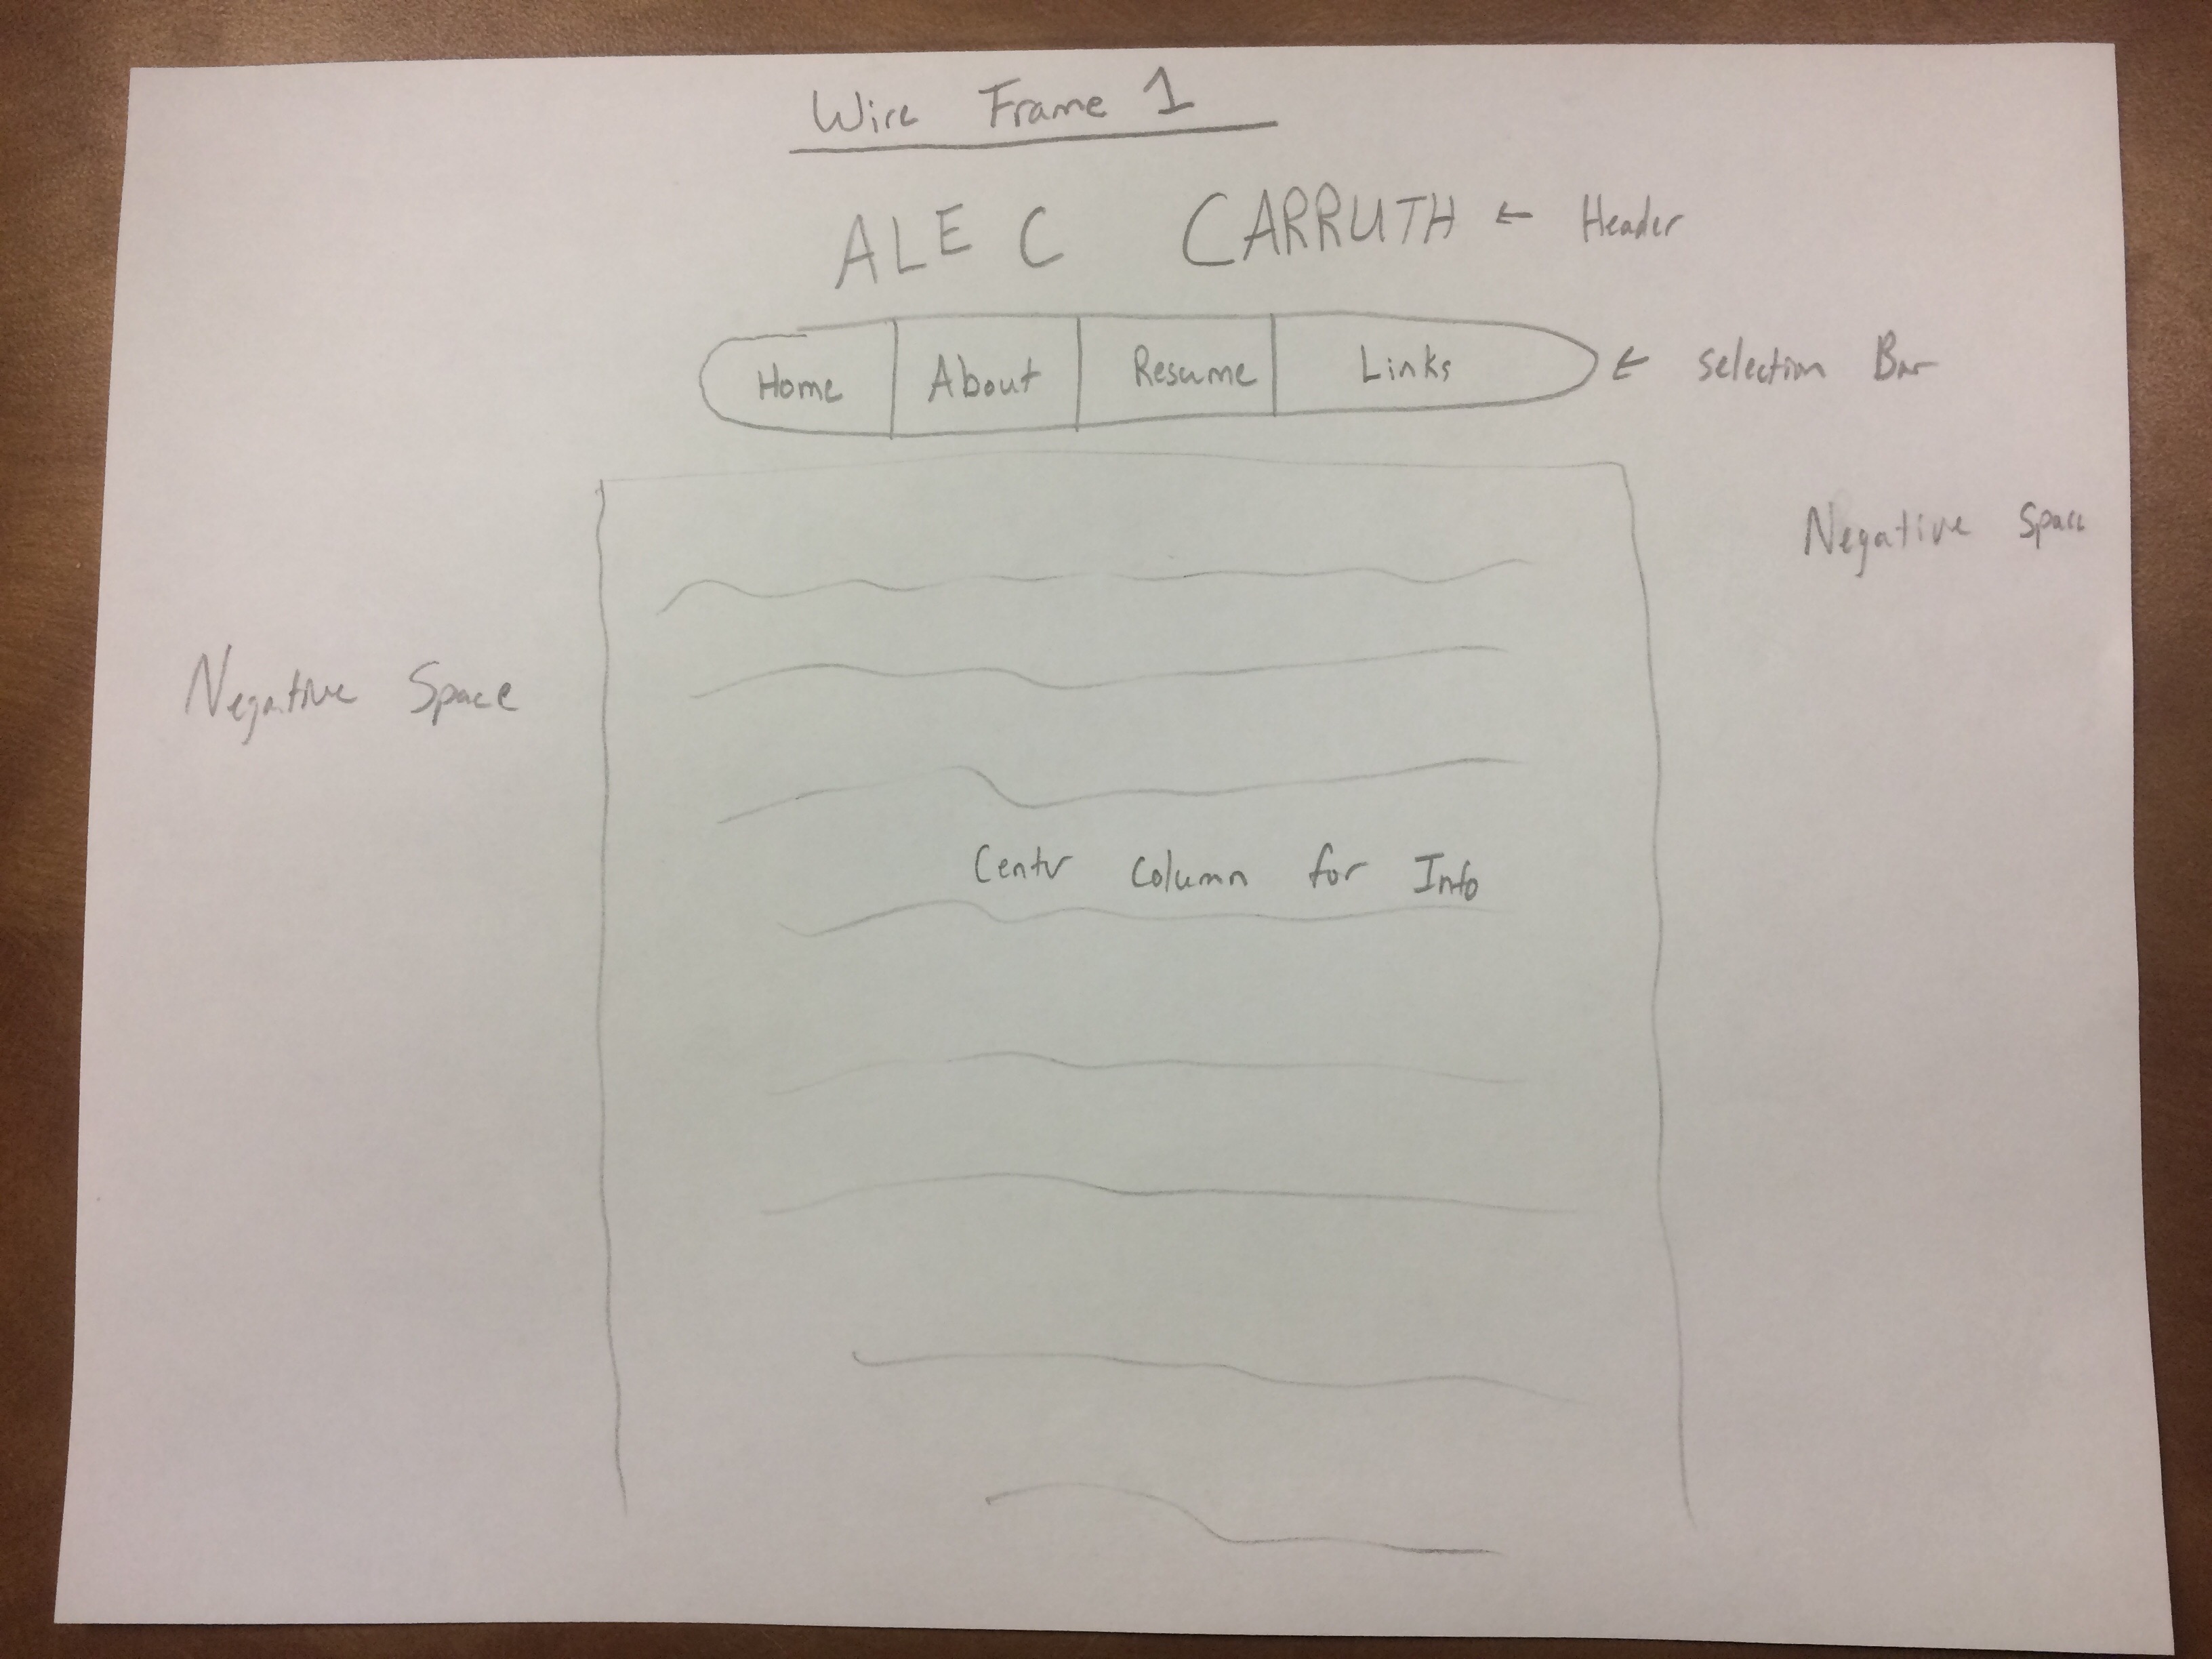 Wire Frame 1
ALEC CARRUTH ← Header
Home About Resume Links ← Selection Bar
Negative Space
Negative Space
Center Column for Info